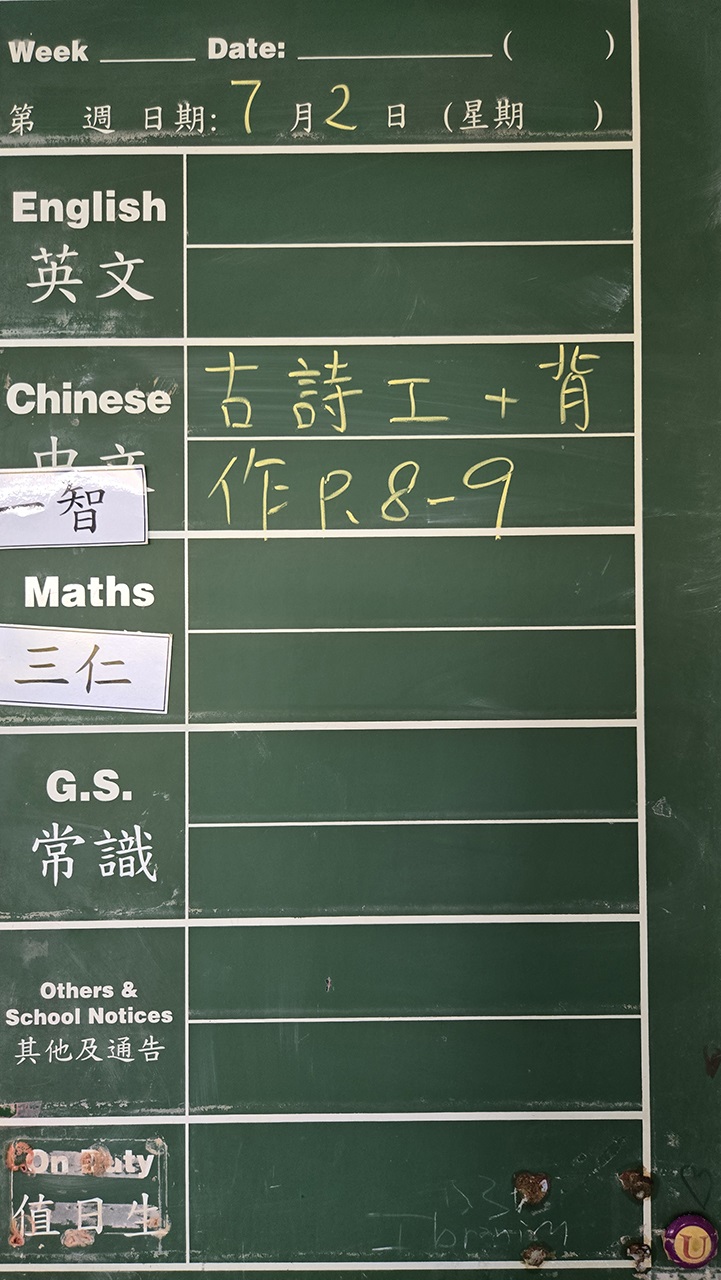 Week ______ Date: ____________ ( )
第 週 日期: 7 月 2 日 (星期 )
English
英文
Chinese
古詩工+背
中文
作 P.8-9
一智
Maths
三仁
G.S.
常識
Others &
School Notices
其他及通告
On Duty
值日生
U